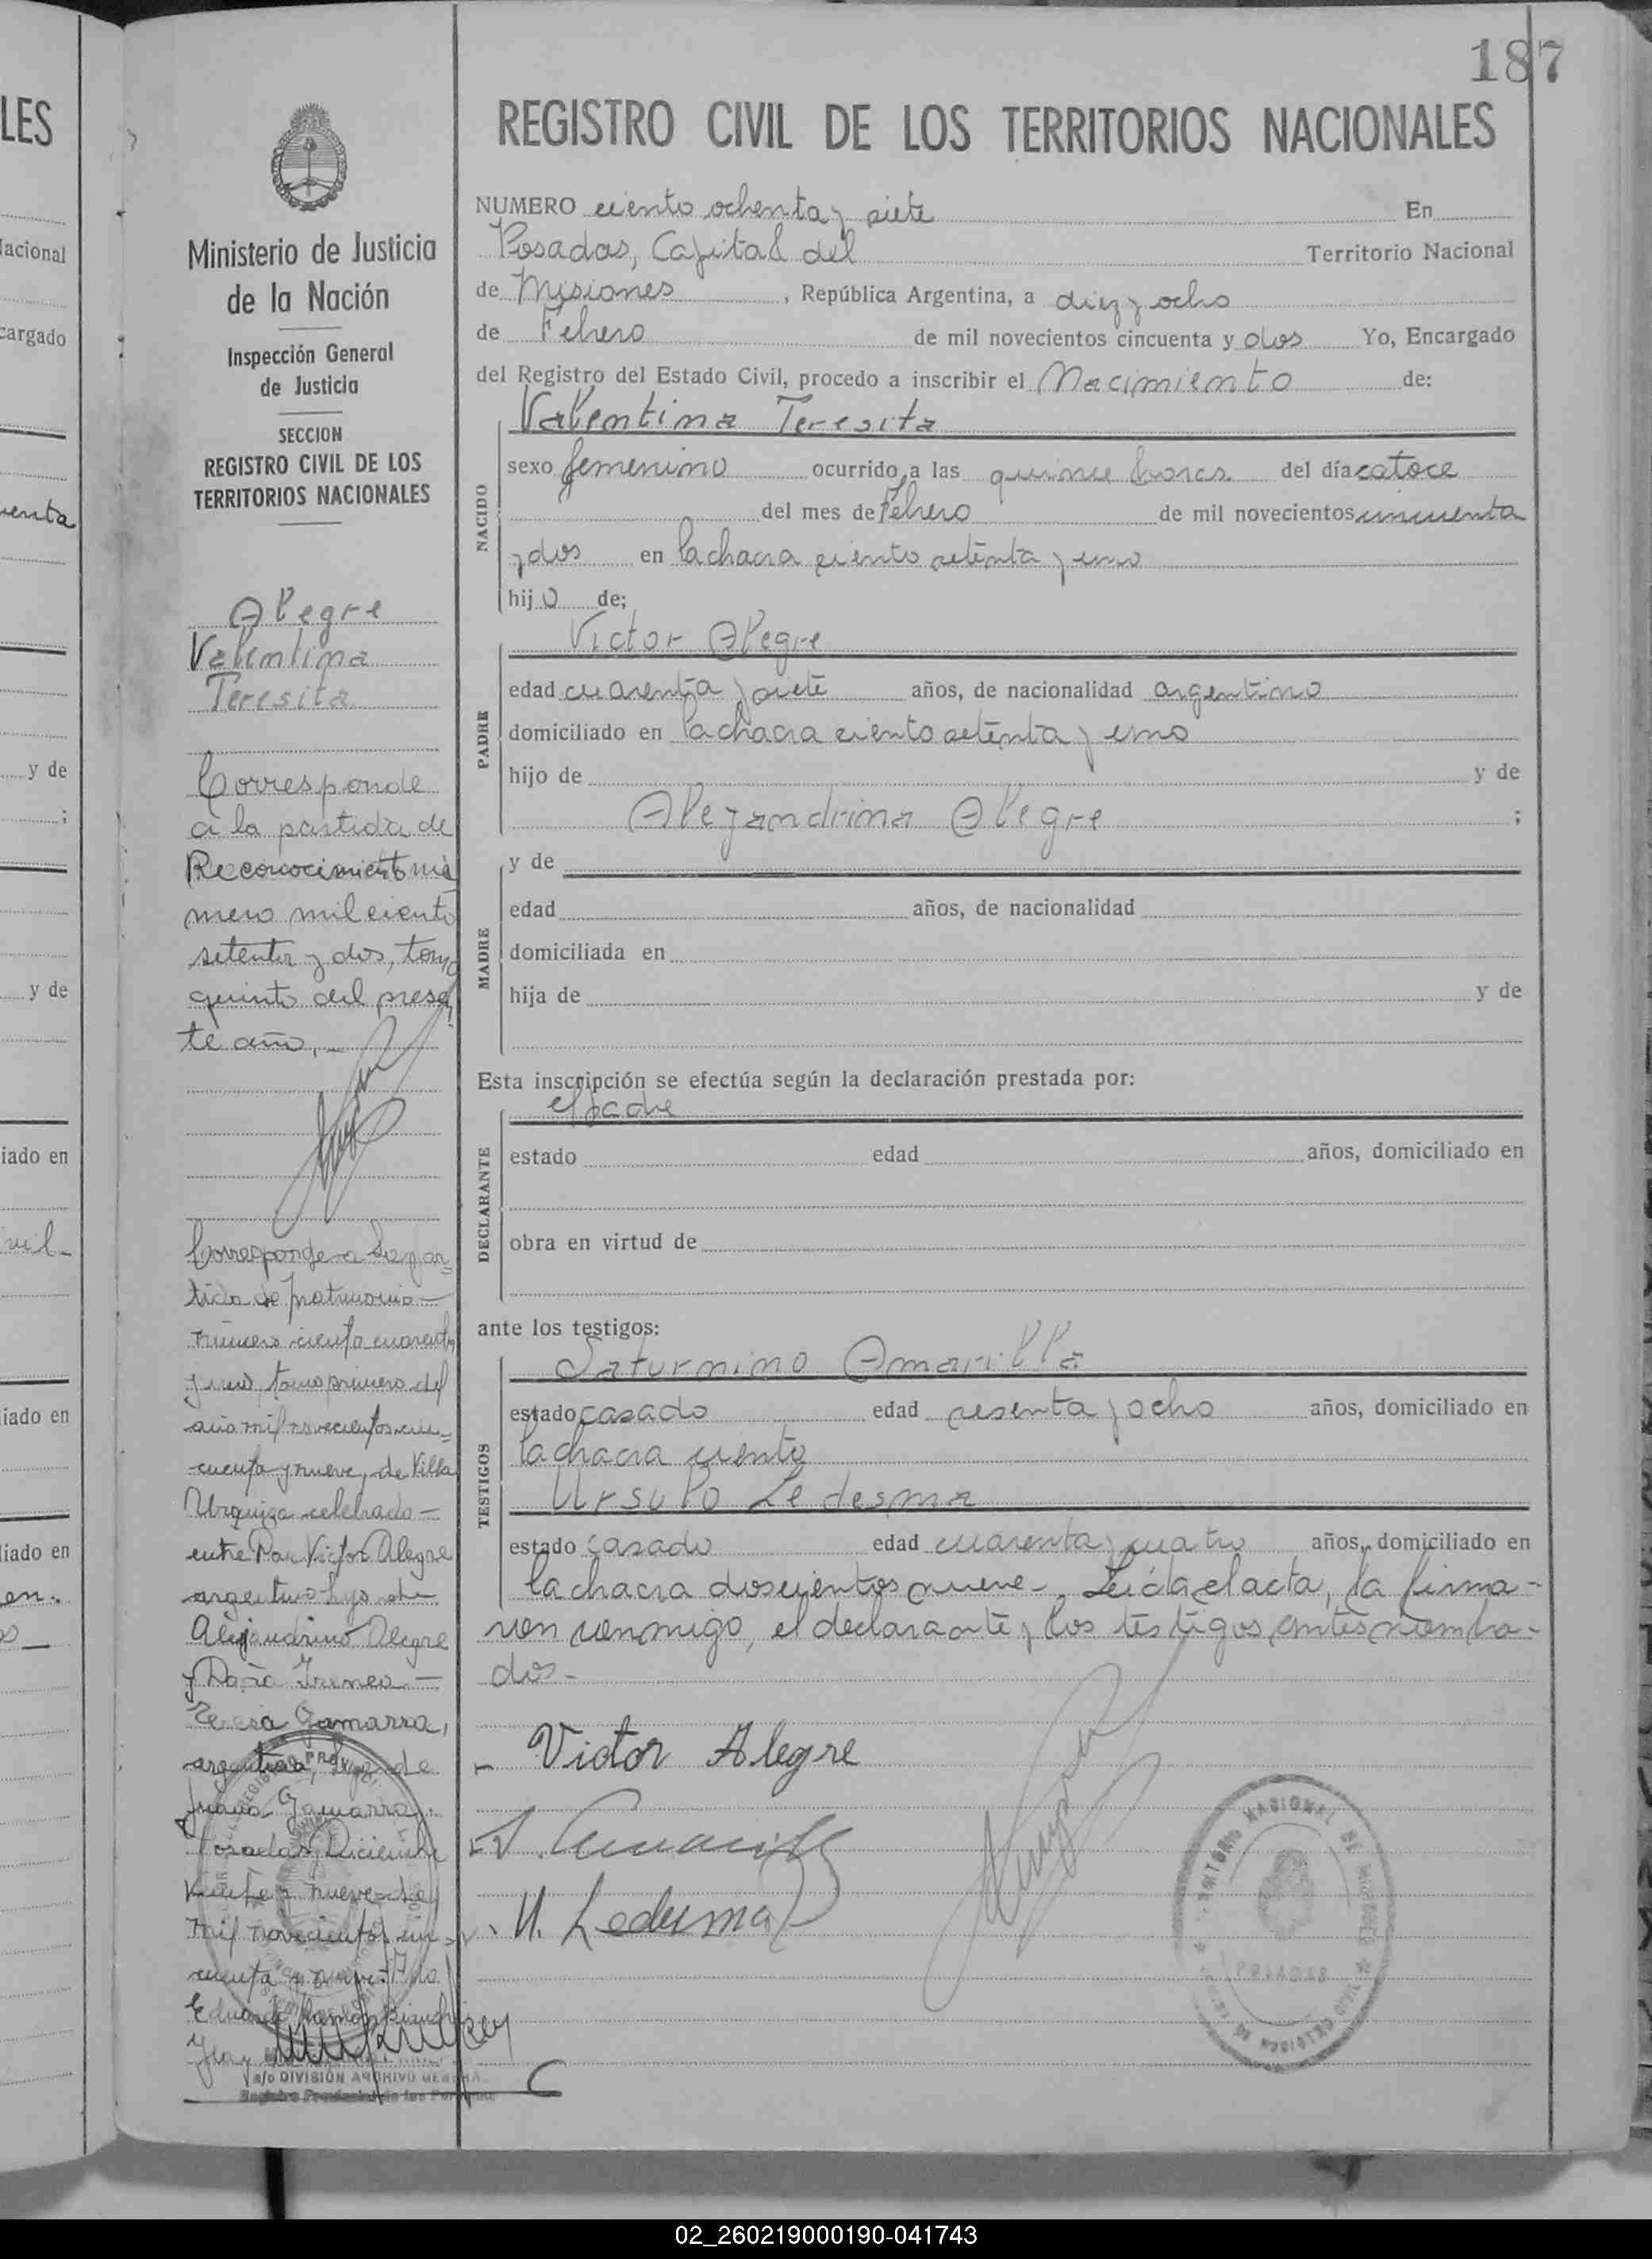 187
LES
REGISTRO CIVIL DE LOS TERRITORIOS NACIONALES
Ministerio de Justicia
de la Nación
Inspección General
de Justicia
SECCION
REGISTRO CIVIL DE LOS
TERRITORIOS NACIONALES
Alegre
Valentina
Teresita
Corresponde
a la partida de
Reconocimiento nú
mero mil ciento
setenta y dos, tomo
quinto del presen
te año.-
Corresponde a la par=
tida de matrimonio -
número ciento cuarenta
y uno, tomo primero del
año mil novecientos cin=
cuenta y nueve, de Villa
Urquiza celebrado -
entre Don Victor Alegre
argentino hijo de
Alejandrino Alegre
y Doña Irenea -
Teresa Gamarra,
argentina, hija de
Juana Gamarra.
Posadas, Diciembre
veinte y nueve de
mil novecientos cin
cuenta y nueve.
Eduardo Ramón
a/c DIVISIÓN ARCHIVO GENERAL
Registro Provincial de las Personas
NUMERO ciento ochenta y siete En
Posadas, Capital del Territorio Nacional
de Misiones, República Argentina, a diez y ocho
de Febrero de mil novecientos cincuenta y dos Yo, Encargado
del Registro del Estado Civil, procedo a inscribir el Nacimiento de:
NACIDO
Valentina Teresita
sexo femenino ocurrido a las quince horas del día catoce
del mes de Febrero de mil novecientos cincuenta
y dos en la chacra ciento setenta y uno
hijo de;
PADRE
Victor Alegre
edad cuarenta y siete años, de nacionalidad argentino
domiciliado en la chacra ciento setenta y uno
hijo de y de
Alejandrina Alegre ;
MADRE
y de
edad años, de nacionalidad
domiciliada en
hija de y de
Esta inscripción se efectúa según la declaración prestada por:
DECLARANTE
el padre
estado edad años, domiciliado en
obra en virtud de
ante los testigos:
TESTIGOS
Saturnino Amarilla
estado casado edad sesenta y ocho años, domiciliado en
la chacra ciento
Ursulo Ledesma
estado casado edad cuarenta y cuatro años, domiciliado en
la chacra doscientos nueve-, Leída el acta, la firma-
ron conmigo, el declarante y los testigos antes nombra-
dos-
Victor Alegre
U. Ledesma
TERRITORIO NACIONAL DE MISIONES
POSADAS
02_260219000190-041743